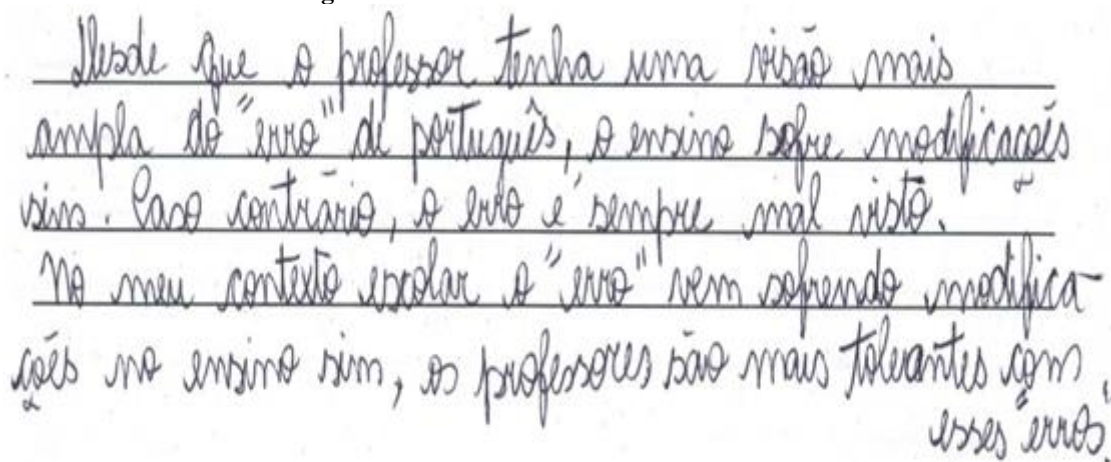 Desde que o professor tenha uma visão mais
ampla do "erro" de português, o ensino sofre modificações
sim. Caso contrário, o erro é sempre mal visto.
No meu contexto escolar o "erro" vem sofrendo modifica-
ções no ensino sim, os professores são mais tolerantes com
esses "erros".